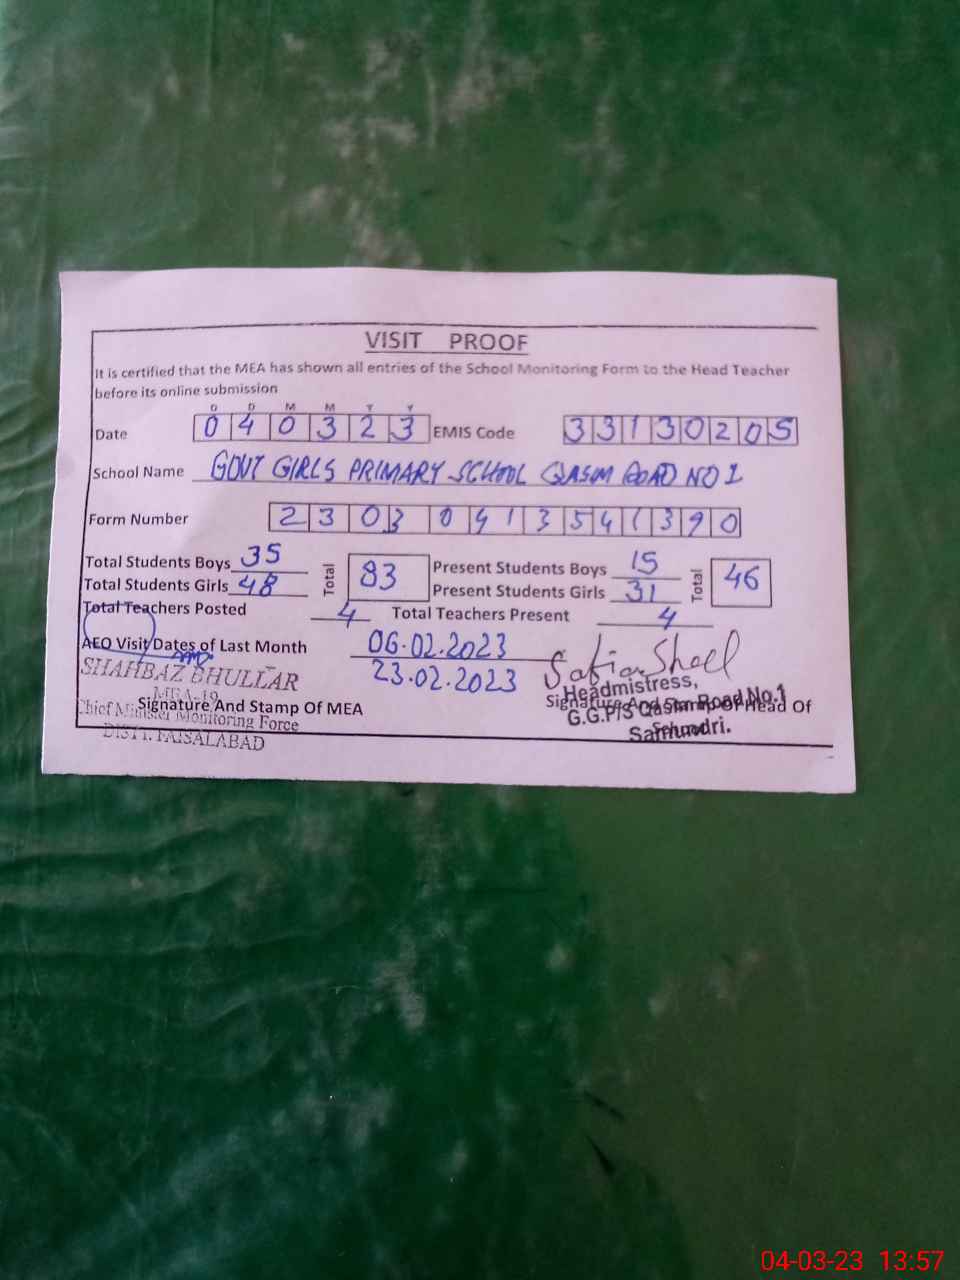 VISIT PROOF
It is certified that the MEA has shown all entries of the School Monitoring Form to the Head Teacher
before its online submission
D D M M Y Y
Date 0 4 0 3 2 3 EMIS Code 3 3 1 3 0 2 0 5
School Name GOVT GIRLS PRIMARY SCHOOL QASIM ROAD NO 1
Form Number 2 3 0 3 0 4 1 3 5 4 1 3 9 0
Total Students Boys 35 Total 83 Present Students Boys 15 Total 46
Total Students Girls 48 Present Students Girls 31
Total Teachers Posted 4 Total Teachers Present 4
AEO Visit Dates of Last Month 06.02.2023
23.02.2023
SHAHBAZ BHULLAR
MEA-19
Chief Minister Monitoring Force
DISTT. FAISALABAD
Signature And Stamp Of MEA
Headmistress,
G.G.P/S Qasim Road No.1
Samundri.
Signature And Stamp Of Head Of
School
04-03-23 13:57